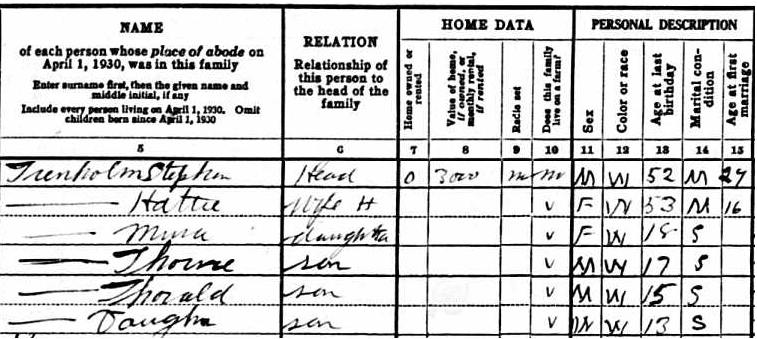 NAME
of each person whose place of abode on
April 1, 1930, was in this family
Enter surname first, then the given name and
middle initial, if any
Include every person living on April 1, 1930. Omit
children born since April 1, 1930
RELATION
Relationship of
this person to
the head of the
family
HOME DATA
Home owned or
rented
Value of home,
if owned, or
monthly rental,
if rented
Radio set
Does this family
live on a farm?
PERSONAL DESCRIPTION
Sex
Color or race
Age at last
birthday
Marital con-
dition
Age at first
marriage
5 6 7 8 9 10 11 12 13 14 15
Trenholm Stephen Head O 3000 M W 52 M 27
Hattie Wife H V F W 53 M 16
daughter V F W 18 S
Thorne son V M W 17 S
Thorald son V M W 15 S
Vaughn son V M W 13 S